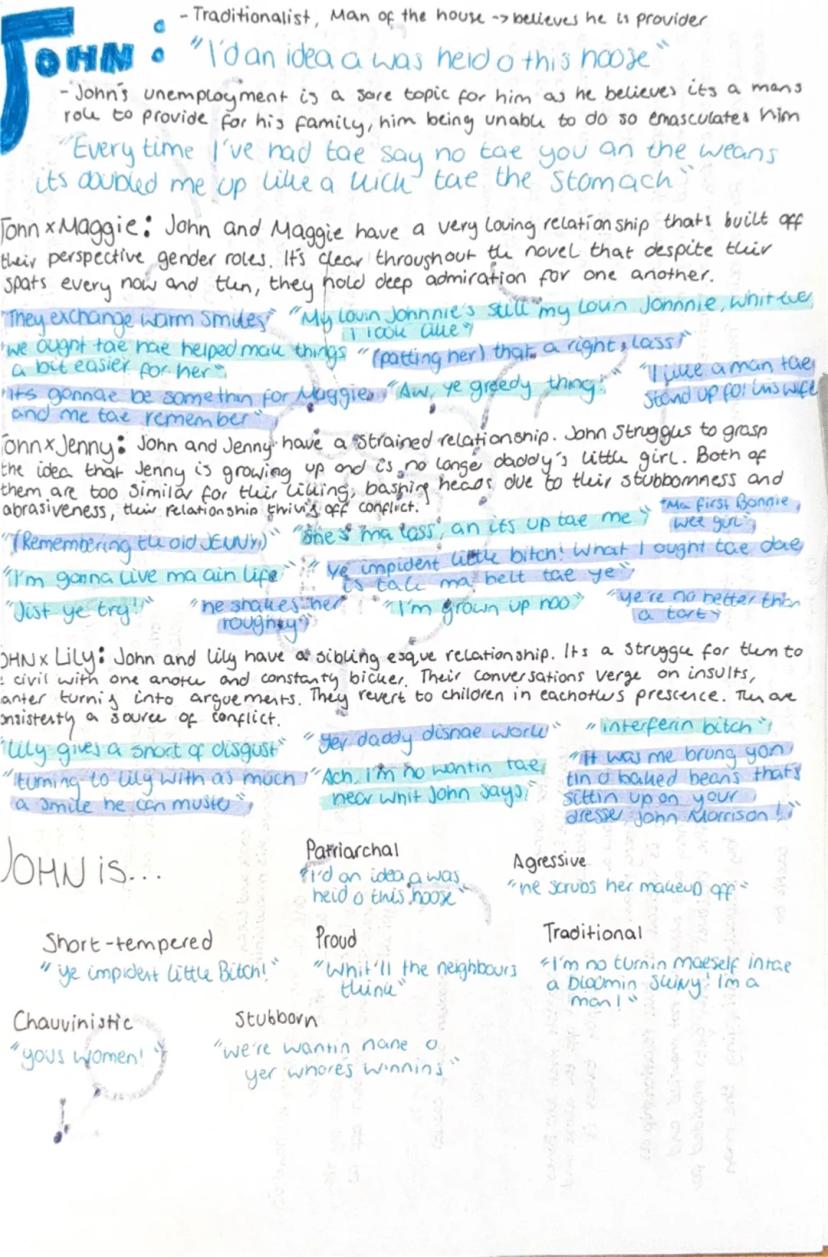 JOHN: - Traditionalist, Man of the house -> believes he is provider
"I'd an idea a was heid o this hoose"
- John's unemployment is a sore topic for him as he believes its a mans
role to provide for his family, him being unable to do so emasculates him
"Every time I've had tae say no tae you an the weans
its doubled me up like a kick tae the stomach"
John x Maggie: John and Maggie have a very loving relationship thats built off
their perspective gender roles. It's clear throughout the novel that despite their
spats every now and then, they hold deep admiration for one another.
"They exchange warm smiles" "My lovin Johnnie's still my lovin Johnnie, whitever
I look like"
"we ought tae hae helped mak things
a bit easier for her" "(patting her) that a right, lass!"
"I like a man tae
stand up for his wife
"its gonnae be somethin for Maggie
and me tae remember" "Aw, ye greedy thing!"
John x Jenny: John and Jenny have a strained relationship. John struggles to grasp
the idea that Jenny is growing up and is no longe daddy's little girl. Both of
them are too similar for their liking, bashing heads due to their stubbornness and
abrasiveness, their relationship thrivis off conflict.
"(Remembering the old JENNY)" "She's ma lass, an its up tae me" "Ma first Bonnie
wee girl"
"I'm gonna live ma ain life" "ye impident little bitch! What I ought tae dae
is tak ma belt tae ye"
"Jist ye try!" "he shakes her
roughly" "I'm grown up noo" "ye're no better than
a tart"
OHN x Lily: John and Lily have a sibling esque relationship. Its a struggle for them to
civil with one another and constanty bicker. Their conversations verge on insults,
anter turnis into arguements. They revert to children in eachothers prescence. They are
onsistently a source of conflict.
"Lily gives a snort of disgust" "Yer daddy disnae work" "interferin bitch"
"turning to Lily with as much
a smile he can muster" "Ach, I'm no wantin tae
hear whit John says" "It was me brung yon
tin o baked beans that's
sittin up on your
dresser John Morrison!"
JOHN is...
Patriarchal
"I'd an idea a was
heid o this hoose"
Agressive
"he scrubs her makeup off"
Short-tempered
"ye impident little Bitch!"
Proud
"Whit'll the neighbours
think"
Traditional
"I'm no turnin maeself intae
a bloomin skivvy! I'm a
man!"
Chauvinistic
"yous women!"
Stubborn
"we're wantin nane o
yer whore's winnins"